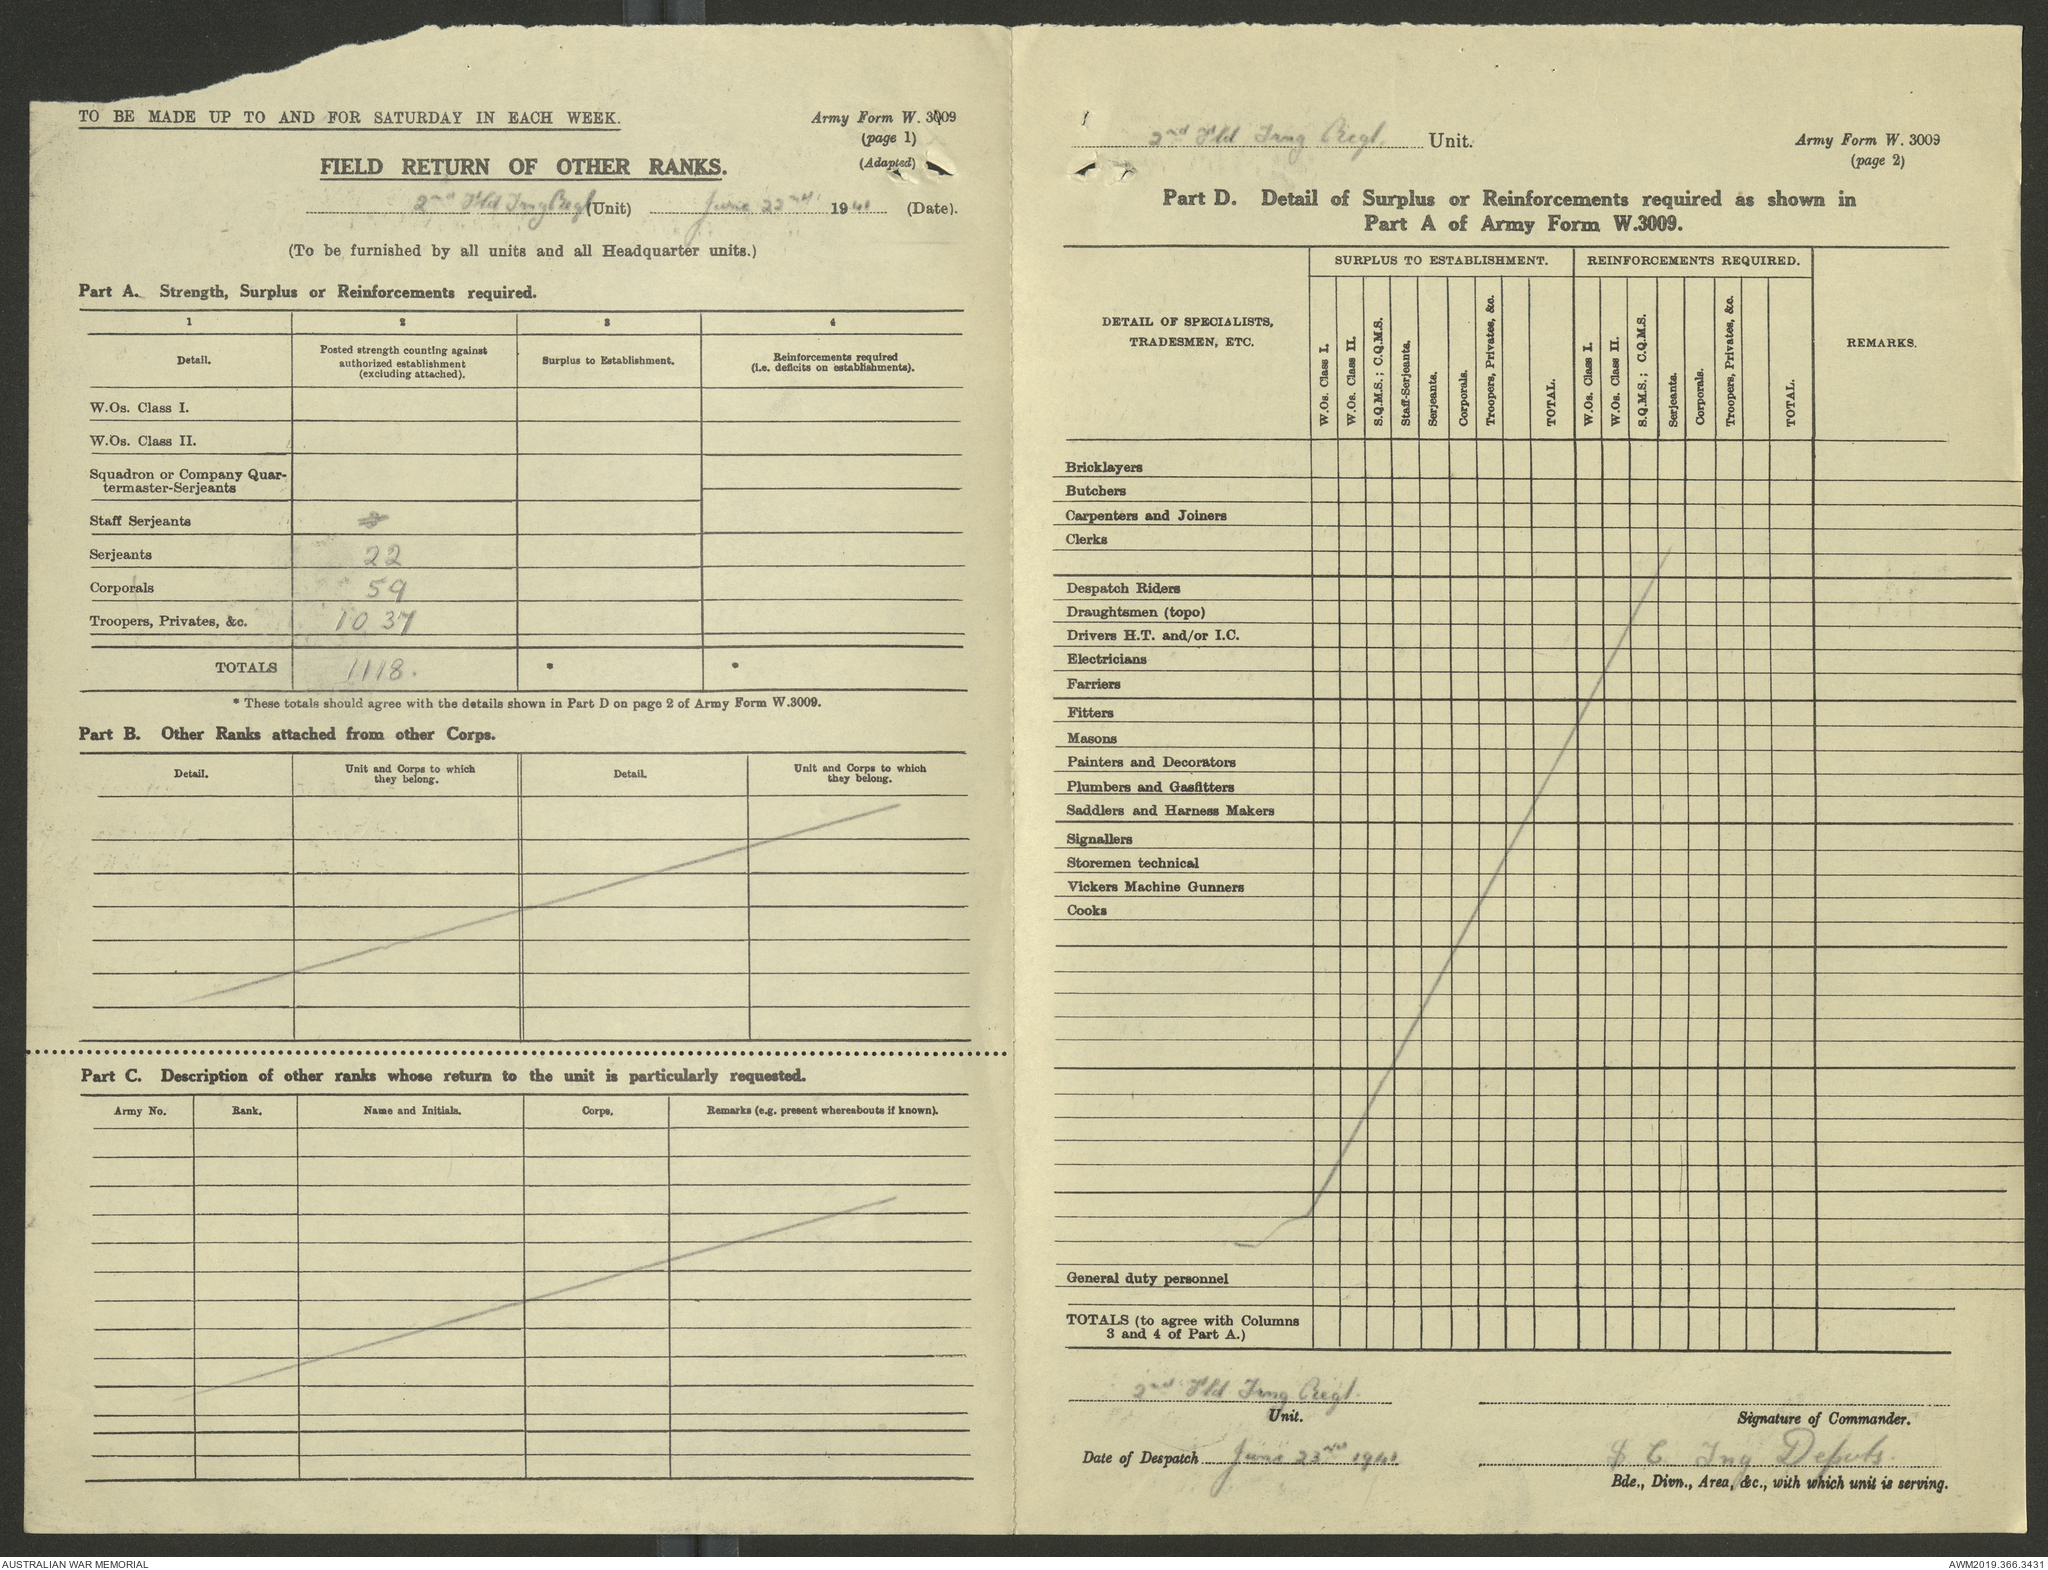 TO BE MADE UP TO AND FOR SATURDAY IN EACH WEEK.
Army Form W. 3009
(page 1)
(Adapted)
FIELD RETURN OF OTHER RANKS.
2nd Fld Trng Regt (Unit) June 22nd 1941 (Date).
(To be furnished by all units and all Headquarter units.)
Part A. Strength, Surplus or Reinforcements required.
1 2 3 4
Detail. Posted strength counting against authorized establishment (excluding attached). Surplus to Establishment. Reinforcements required (i.e. deficits on establishments).
W.Os. Class I.
W.Os. Class II.
Squadron or Company Quar-
termaster-Serjeants
Staff Serjeants
Serjeants 22
Corporals 59
Troopers, Privates, &c. 1037
TOTALS 1118. * *
* These totals should agree with the details shown in Part D on page 2 of Army Form W.3009.
Part B. Other Ranks attached from other Corps.
Detail. Unit and Corps to which they belong. Detail. Unit and Corps to which they belong.
Part C. Description of other ranks whose return to the unit is particularly requested.
Army No. Rank. Name and Initials. Corps. Remarks (e.g. present whereabouts if known).
2nd Fld Trng Regt. Unit.
Army Form W. 3009
(page 2)
Part D. Detail of Surplus or Reinforcements required as shown in
Part A of Army Form W.3009.
SURPLUS TO ESTABLISHMENT. REINFORCEMENTS REQUIRED.
DETAIL OF SPECIALISTS,
TRADESMEN, ETC.
W.Os. Class I.
W.Os. Class II.
S.Q.M.S.; C.Q.M.S.
Staff-Serjeants.
Serjeants.
Corporals.
Troopers, Privates, &c.
TOTAL.
W.Os. Class I.
W.Os. Class II.
S.Q.M.S.; C.Q.M.S.
Serjeants.
Corporals.
Troopers, Privates, &c.
TOTAL.
REMARKS.
Bricklayers
Butchers
Carpenters and Joiners
Clerks
Despatch Riders
Draughtsmen (topo)
Drivers H.T. and/or I.C.
Electricians
Farriers
Fitters
Masons
Painters and Decorators
Plumbers and Gasfitters
Saddlers and Harness Makers
Signallers
Storemen technical
Vickers Machine Gunners
Cooks
General duty personnel
TOTALS (to agree with Columns
3 and 4 of Part A.)
2nd Fld Trng Regt.
Unit.
Signature of Commander.
Date of Despatch June 23rd 1941
Trng Depots.
Bde., Divn., Area, &c., with which unit is serving.
AUSTRALIAN WAR MEMORIAL
AWM2019.366.3431